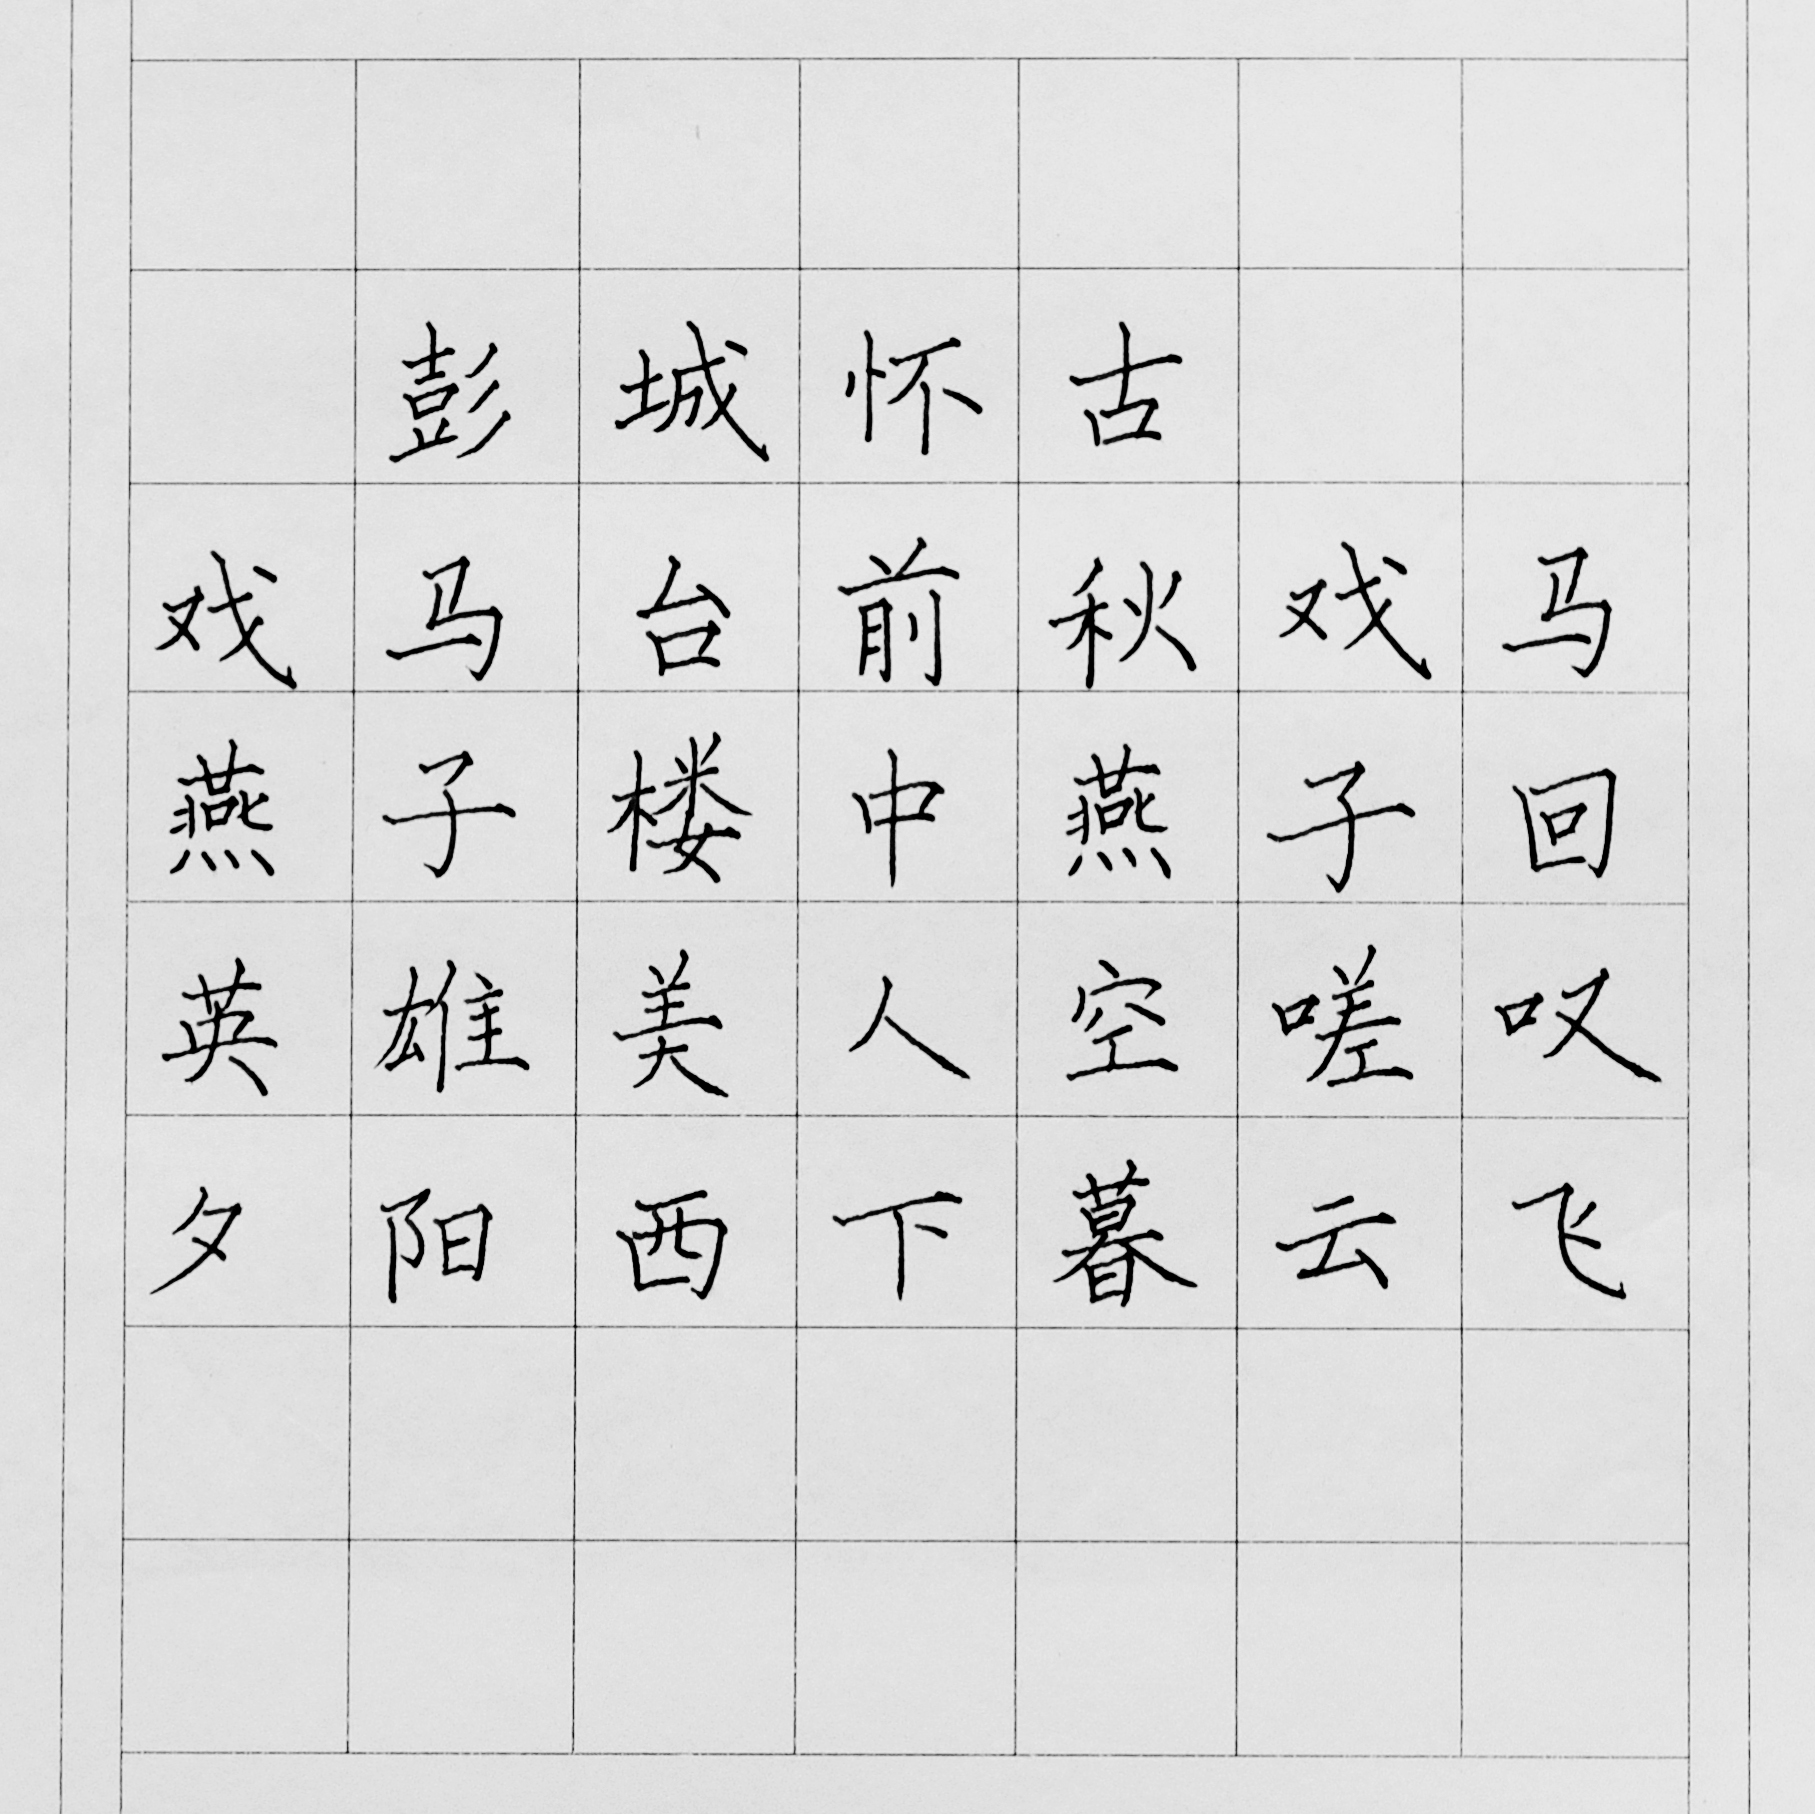 彭城怀古
戏马台前秋戏马
燕子楼中燕子回
英雄美人空嗟叹
夕阳西下暮云飞